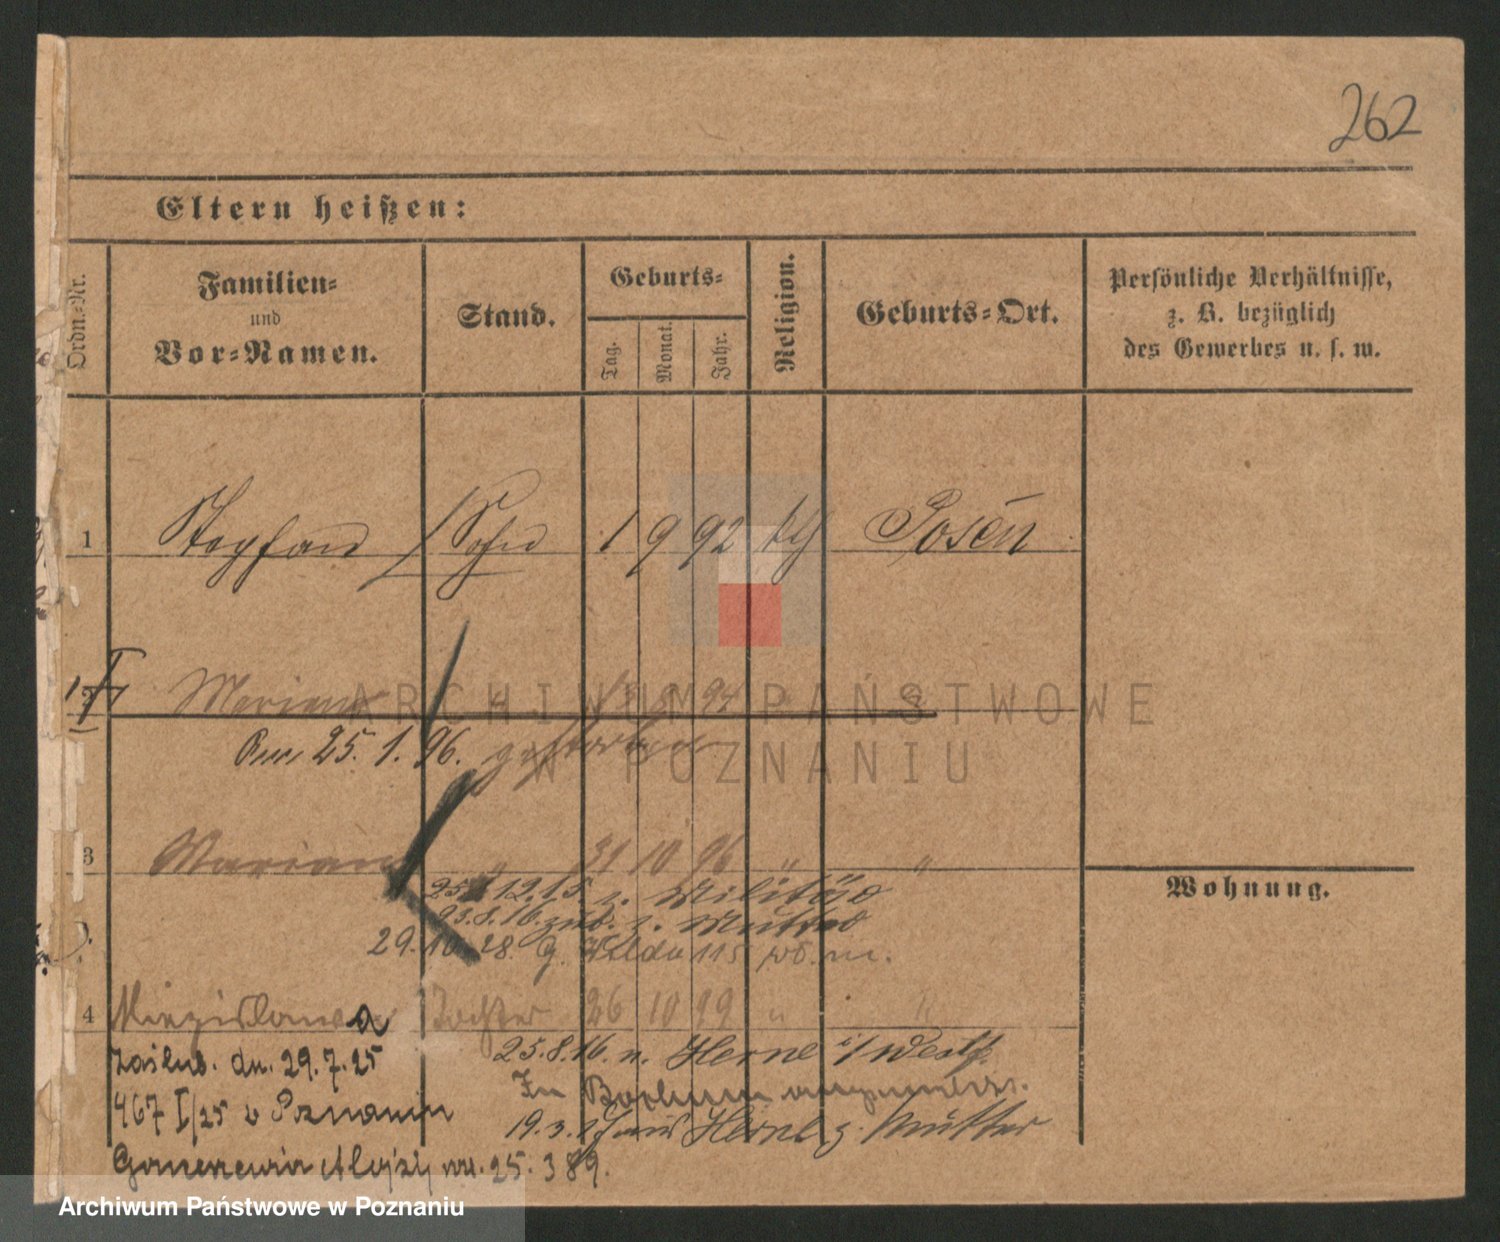 262
Eltern heißen:
Ordn.-Nr.
Familien-
und
Vor-Namen.
Stand.
Geburts-
Tag.
Monat.
Jahr.
Religion.
Geburts-Ort.
Persönliche Verhältnisse,
z. B. bezüglich
des Gewerbes u. s. w.
1 Stephan Sohn 1 9 92 kth Posen
2 Marian " 94 "
Am 25. 1. 96. gestorben
3 Marian " 31 10 96 " "
25. 12. 15 z. Militär
23. 8. 16. zur. z. Mutter
29. 10. 28. G. Wilda 115 m.
Wohnung.
4 Miezislawa Tochter 26 10 99 " "
25. 8. 16. n. Herne i/Westf.
Zaślub. dn. 29. 7. 25
In Bochum
467 I/25 w Poznaniu
19. 3. Herne z. Mutter
Alojzy ur. 25. 3 89.
ARCHIWUM PAŃSTWOWE
W POZNANIU
Archiwum Państwowe w Poznaniu